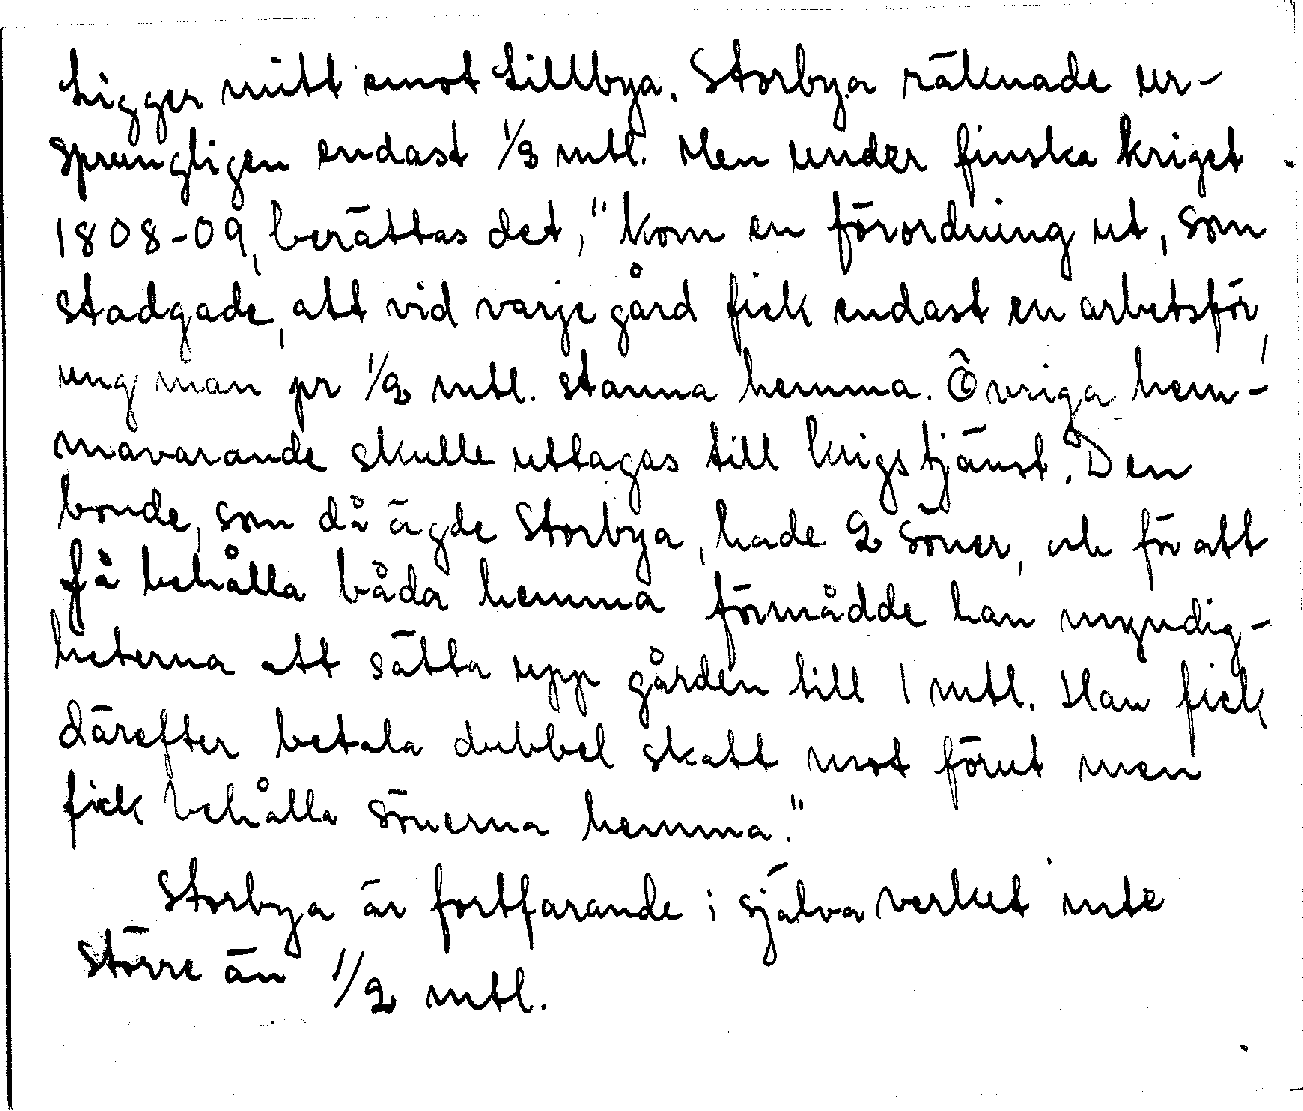 Ligger mitt emot Lillbya. Storbya räknade ur-
sprungligen endast 1/2 mtl. Men under finska kriget
1808-09, berättas det, "kom en förordning ut, som
stadgade, att vid varje gård fick endast en arbetsför,
ung man pr 1/2 mtl. stanna hemma. Övriga hem-
mavarande skulle uttagas till krigstjänst. Den
bonde, som då ägde Storbya, hade 2 söner, och för att
få behålla båda hemma förmådde han myndig-
heterna att sätta upp gården till 1 mtl. Han fick
därefter betala dubbel skatt mot förut men
fick behålla sönerna hemma."
Storbya är fortfarande i själva verket inte
större än 1/2 mtl.